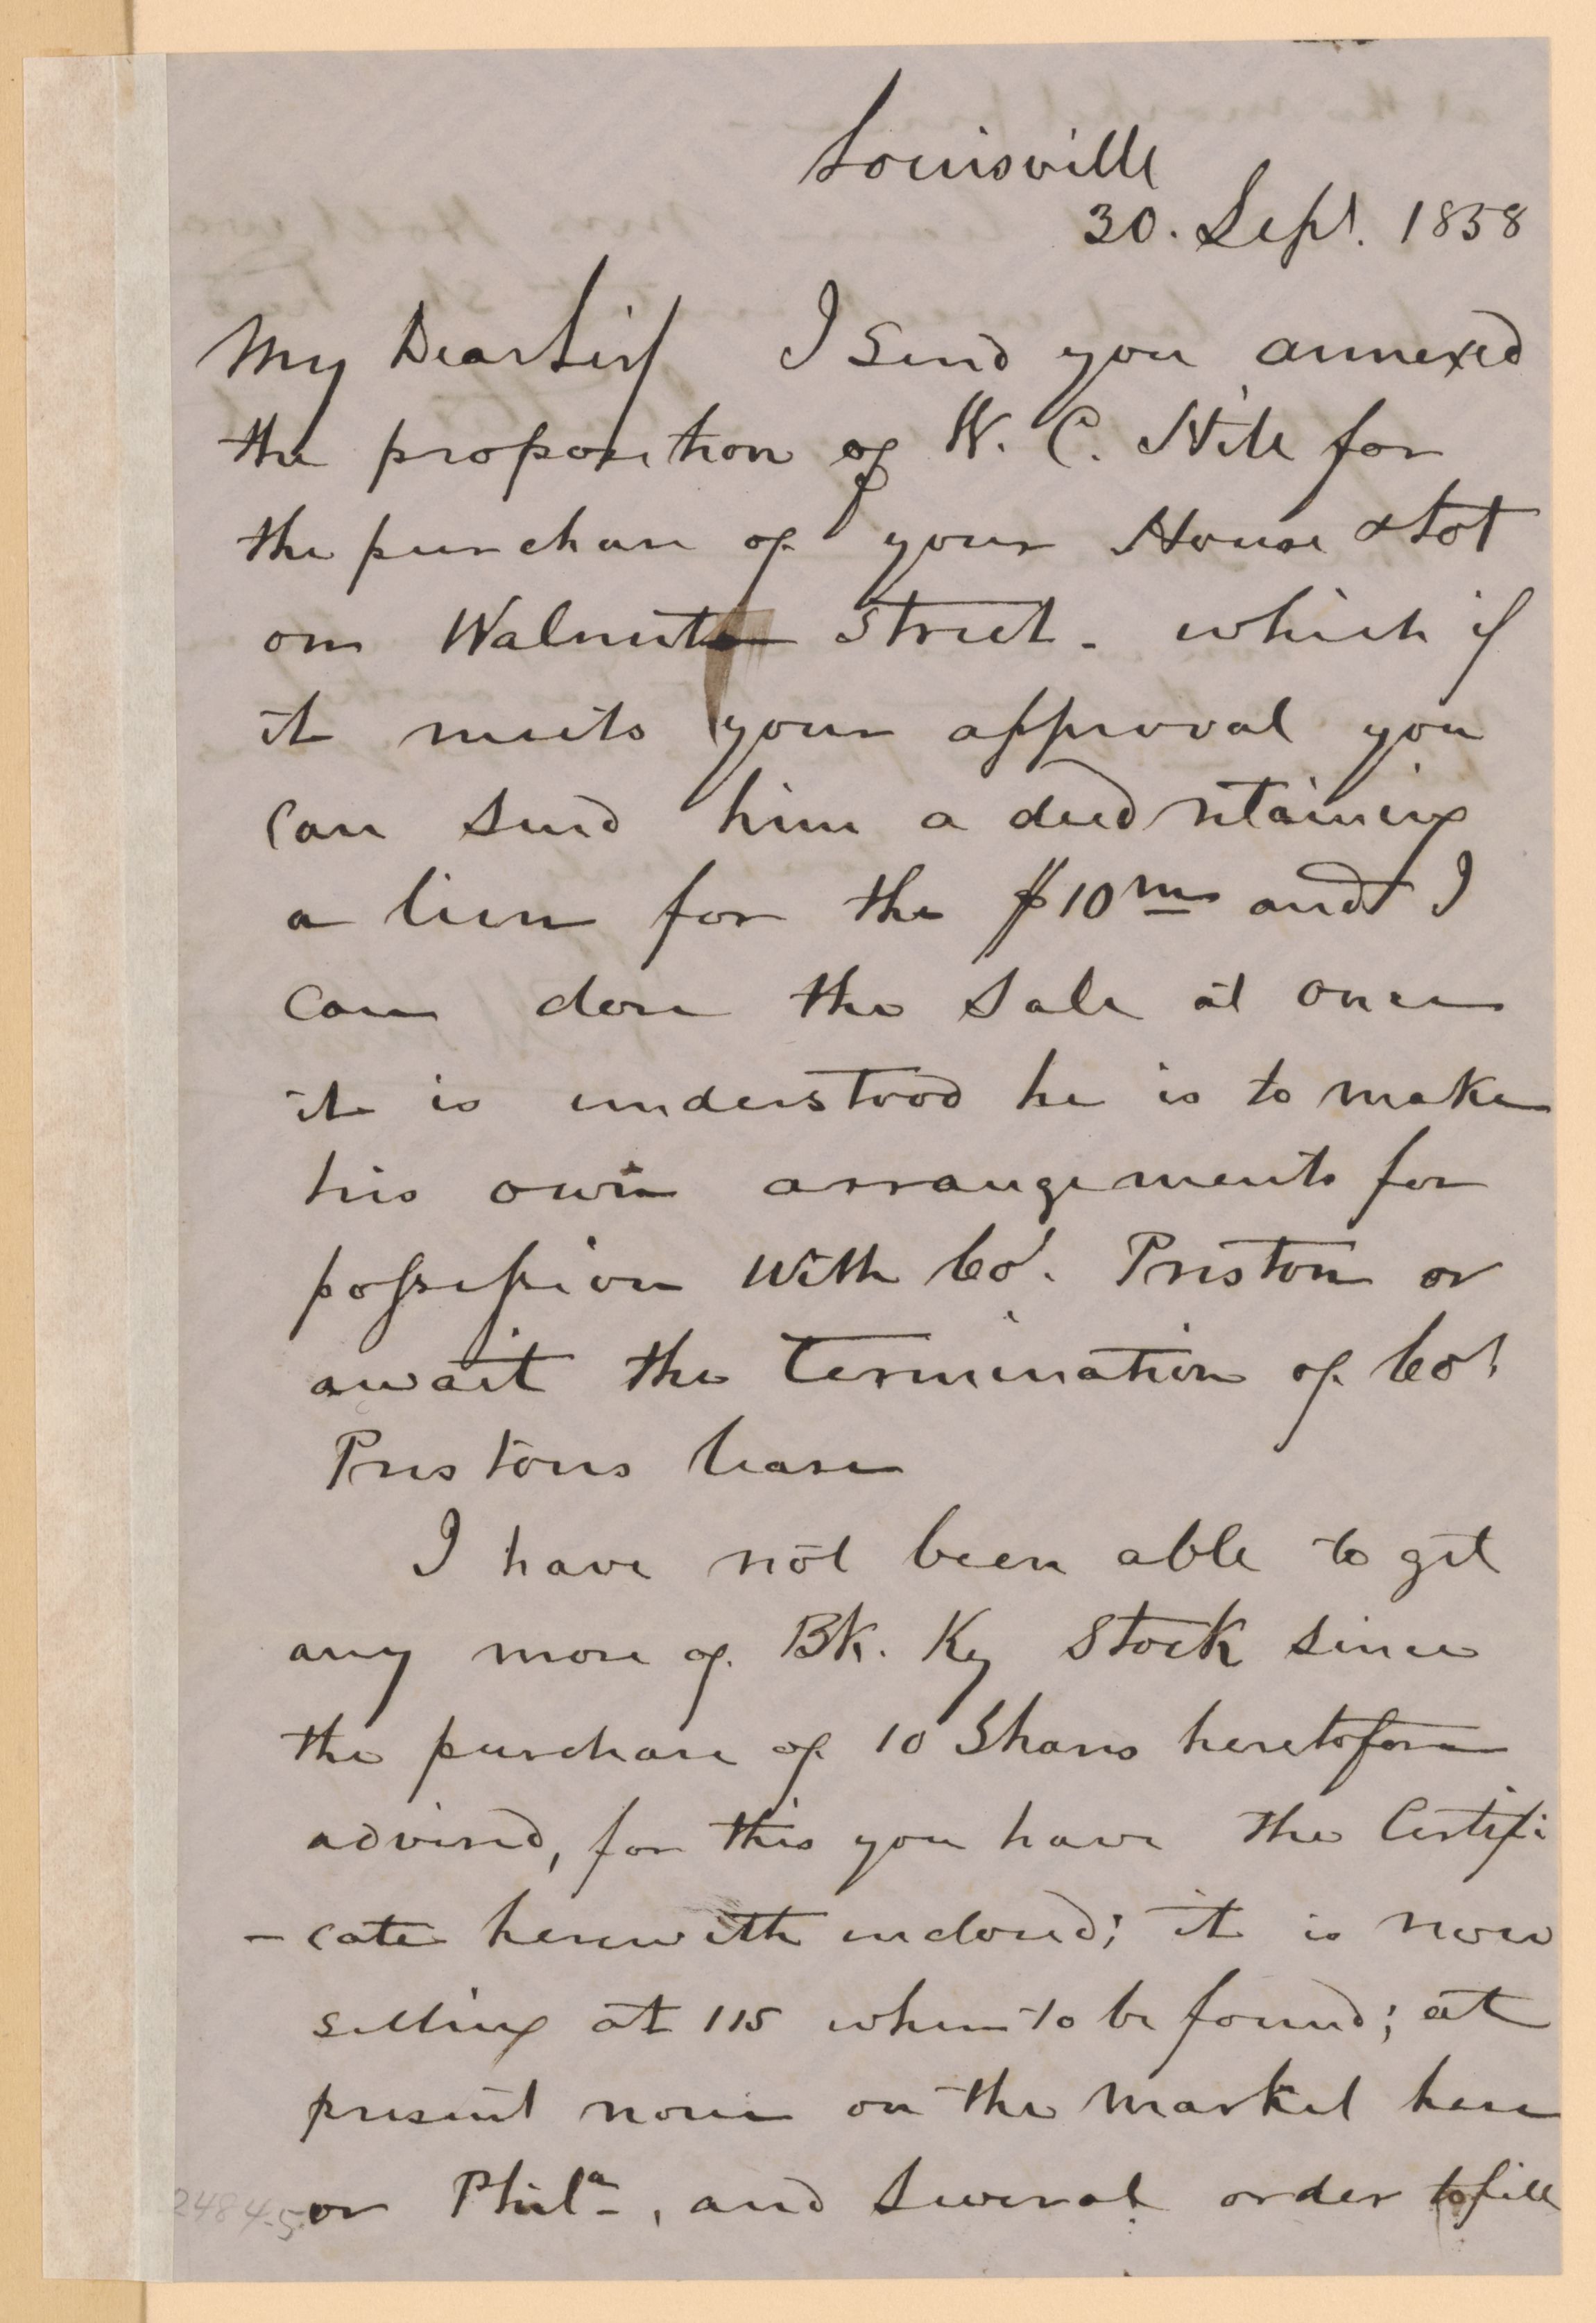 Louisville
30. Sept. 1858
My Dear Sir I send you annexed
the proposition of W. C. Hite for
the purchase of your House & Lot
on Walnut Street - which if
it meets your approval you
can send him a deed retaining
a lien for the $10m and I
can close the sale at once
it is understood he is to make
his own arrangements for
possession with Col. Preston or
await the termination of Col
Prestons lease
I have not been able to get
any more of Bk. Ky Stock since
the purchase of 10 Shares heretofore
advised, for this you have the Certifi
- cate herewith enclosed; it is now
selling at 115 when to be found; at
present none on the market here
or Phila, and several order to fill
2484-5